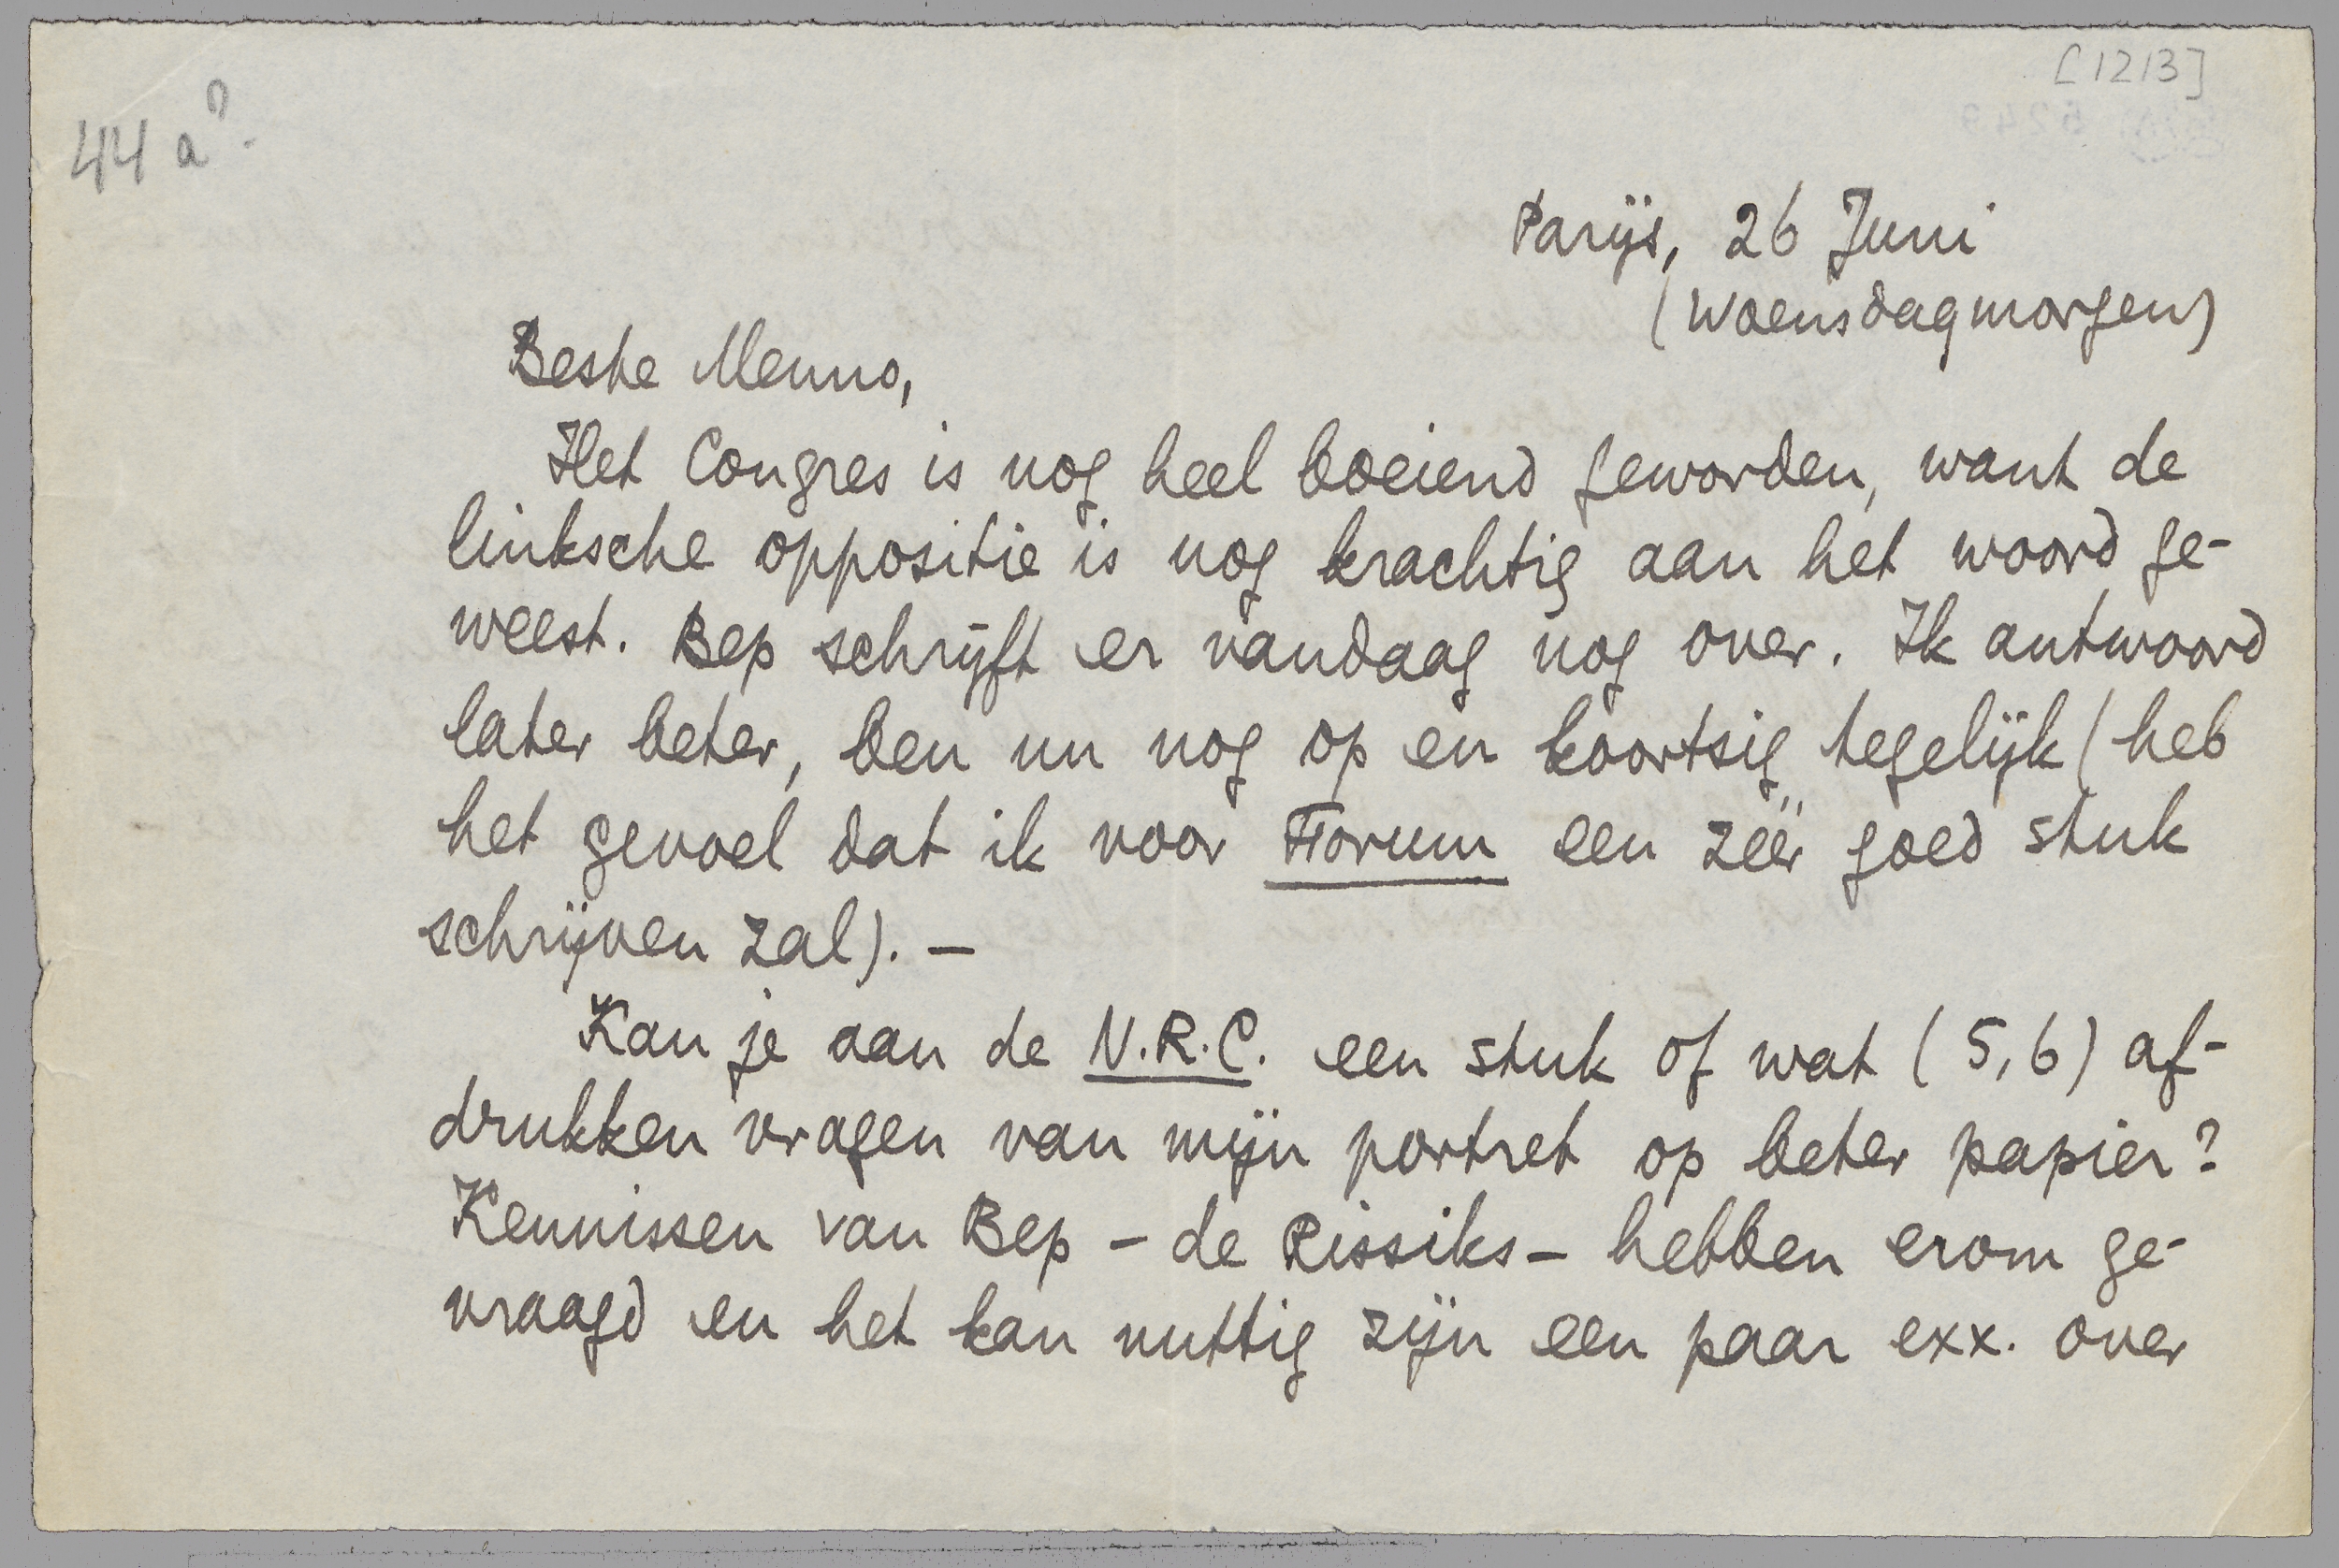 [1213]
44 a?.
Parijs, 26 Juni
(Woensdagmorgen)
Beste Menno,
Het Congres is nog heel boeiend geworden, want de
linksche oppositie is nog krachtig aan het woord ge-
weest. Bep schrijft er vandaag nog over. Ik antwoord
later beter, ben nu nog op en koortsig tegelijk (heb
het gevoel dat ik voor Forum een zéér goed stuk
schrijven zal). –
Kan je aan de N.R.C. een stuk of wat (5, 6) af-
drukken vragen van mijn portret op beter papier?
Kennissen van Bep – de Rissiks – hebben erom ge-
vraagd en het kan nuttig zijn een paar exx. over